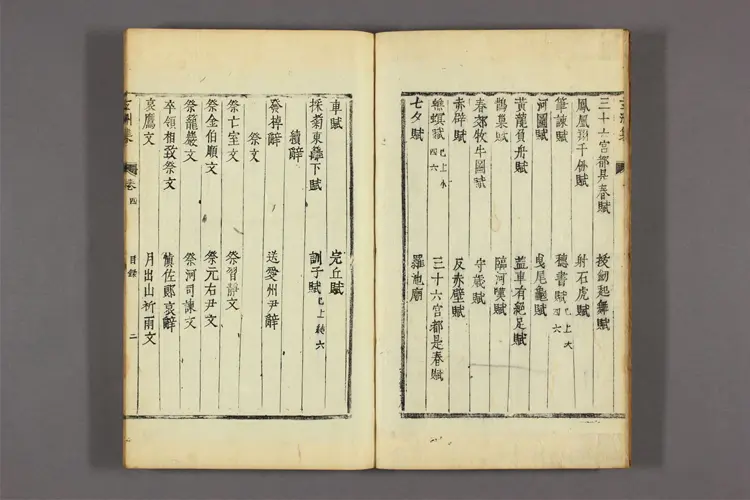 三十六宮都是春賦 拔劒起舞賦
鳳凰翔千仞賦 射石虎賦
筆諫賦 聽書賦 已上
河圖賦 曳尾龜賦
黃龍負舟賦 蓋車有絕足賦
鵲巢賦 臨河嘆賦
春郊牧牛圖賦 守歲賦
赤壁賦 反赤壁賦
賦 已上 四六 三十六宮都是春賦
七夕賦 羅池廟
車賦 完丘賦
採菊東籬下賦 訓子賦 已上 六
續辭
發棹辭 送愛州尹辭
祭文
祭亡室文 祭習靜文
祭金伯順文 祭元右尹文
祭籠巖文 祭河司諫文
卒領相致祭文 慎佐郞哀辭
哀鷹文 月出山祈雨文
玄洲集 卷四 目錄 二